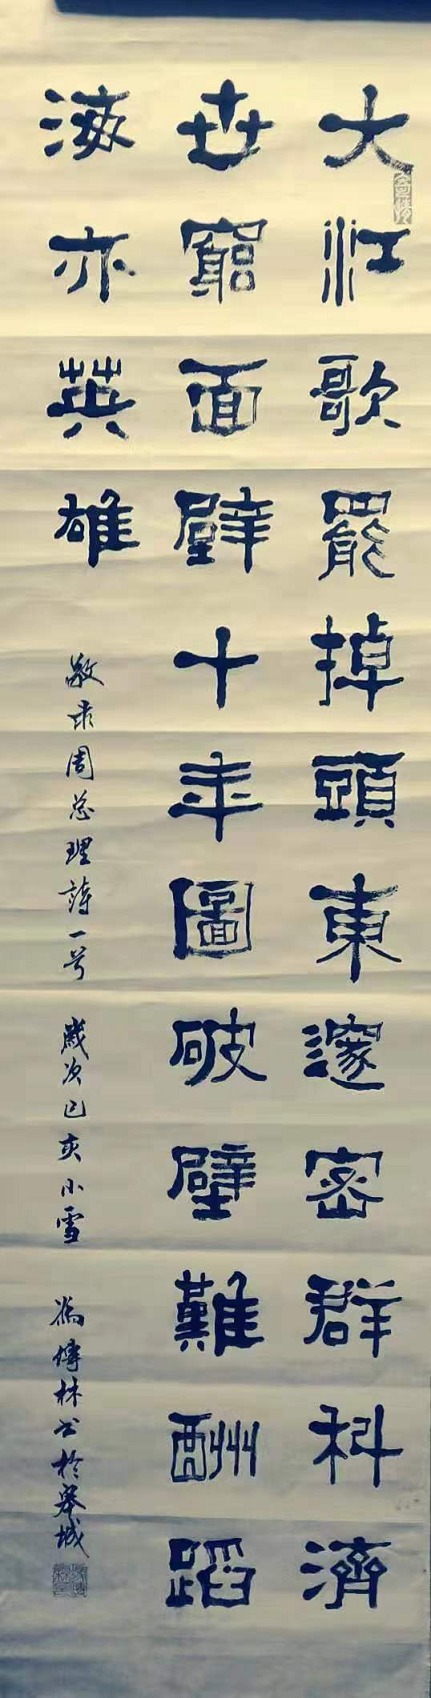 大江歌罷掉頭東邃密群科濟
世窮面壁十年圖破壁難酬蹈
海亦英雄
敬录周总理詩一首 歲次己亥小雪 馮傳林书於皋城